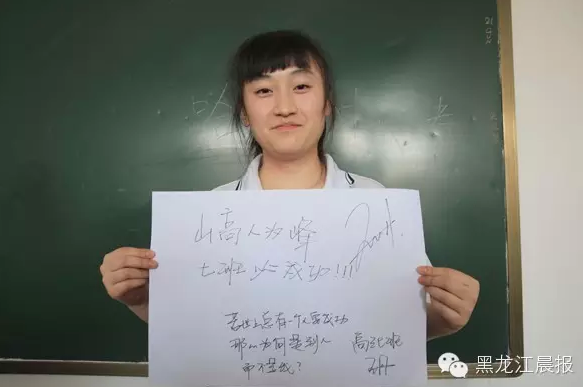 山高人为峰
七班必成功!!!
若世上总有一个人要成功
那么为何是别人
而不是我?
高三七班
黑龙江晨报